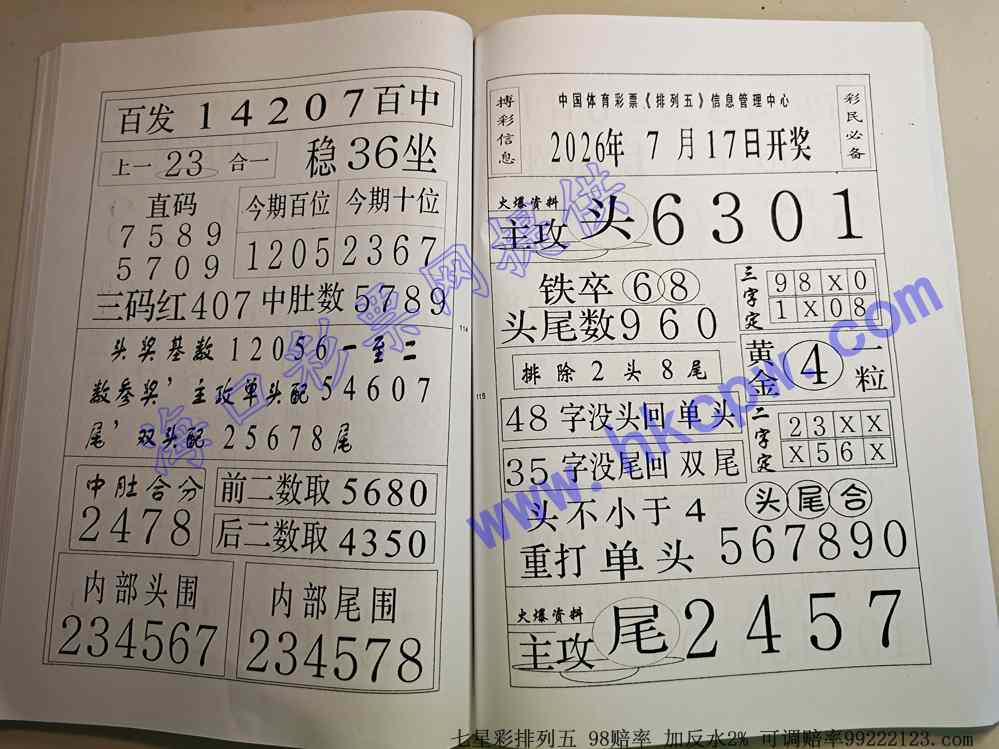 百发 14207 百中
上一 23 合一
稳 36 坐
直码
7589
5709
今期百位 今期十位
1205 2367
三码红 407 中肚数 5789
头奖基数 12056 一至二
数参奖，主攻单头配 54607
尾，双头配 25678 尾
中肚合分
2478
前二数取 5680
后二数取 4350
内部头围
234567
内部尾围
234578
114
115
搏彩信息
中国体育彩票《排列五》信息管理中心
2026年 7月17日开奖
彩民必备
火爆资料
主攻 头 6301
铁卒 68
头尾数 960
排除 2 头 8 尾
三字定
98X0
1X08
黄金 4 一粒
48 字没头回 单 头
35 字没尾回 双 尾
二字定
23XX
X56X
头不小于 4
头尾合
重打 单 头 567890
火爆资料
主攻 尾 2457
海口彩票网提供
www.hkcpw.com
七星彩排列五 98赔率 加反水2% 可调赔率99222123.com